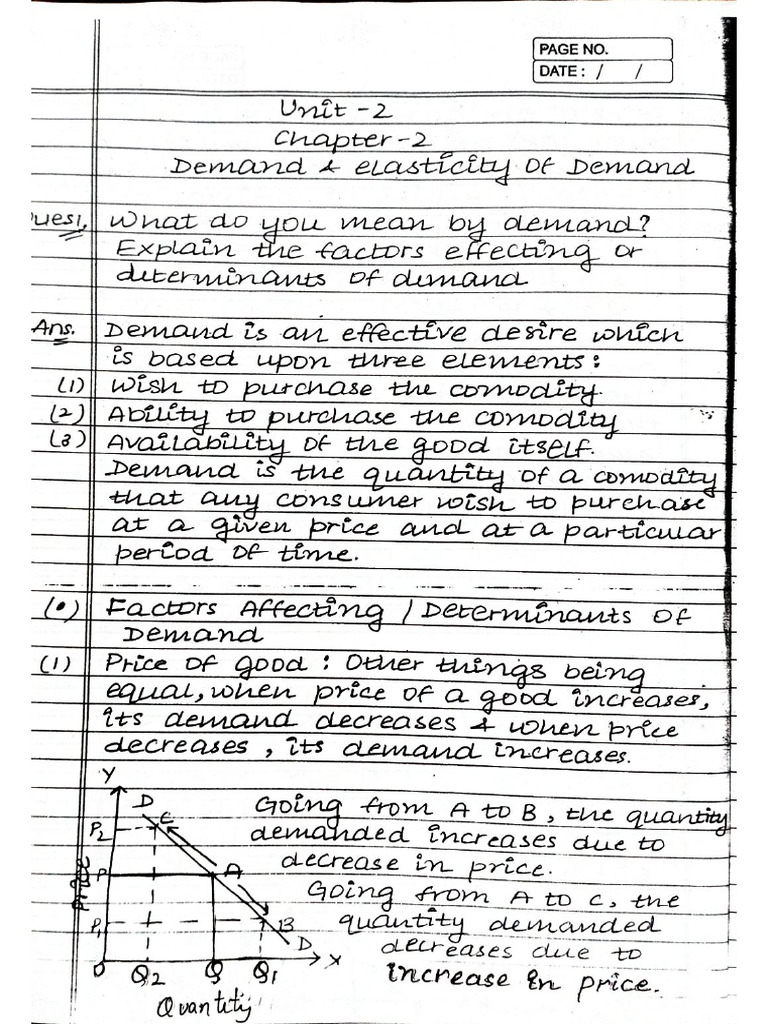 PAGE NO.
DATE : / /
Unit - 2
Chapter - 2
Demand & elasticity of Demand
Ques1. What do you mean by demand?
Explain the factors effecting or
determinants of demand
Ans. Demand is an effective desire which
is based upon three elements :
(1) Wish to purchase the comodity.
(2) Ability to purchase the comodity
(3) Availability of the good itself.
Demand is the quantity of a comodity
that any consumer wish to purchase
at a given price and at a particular
period of time.
(•) Factors Affecting / Determinants of
Demand
(1) Price of good : Other things being
equal, when price of a good increases,
its demand decreases & when price
decreases, its demand increases.
Going from A to B, the quantity
demanded increases due to
decrease in price.
Going from A to C, the
quantity demanded
decreases due to
increase in price.
Y
D
C
P2
A
P
Price
P1
B
D
O
Q2
Q
Q1
X
Quantity